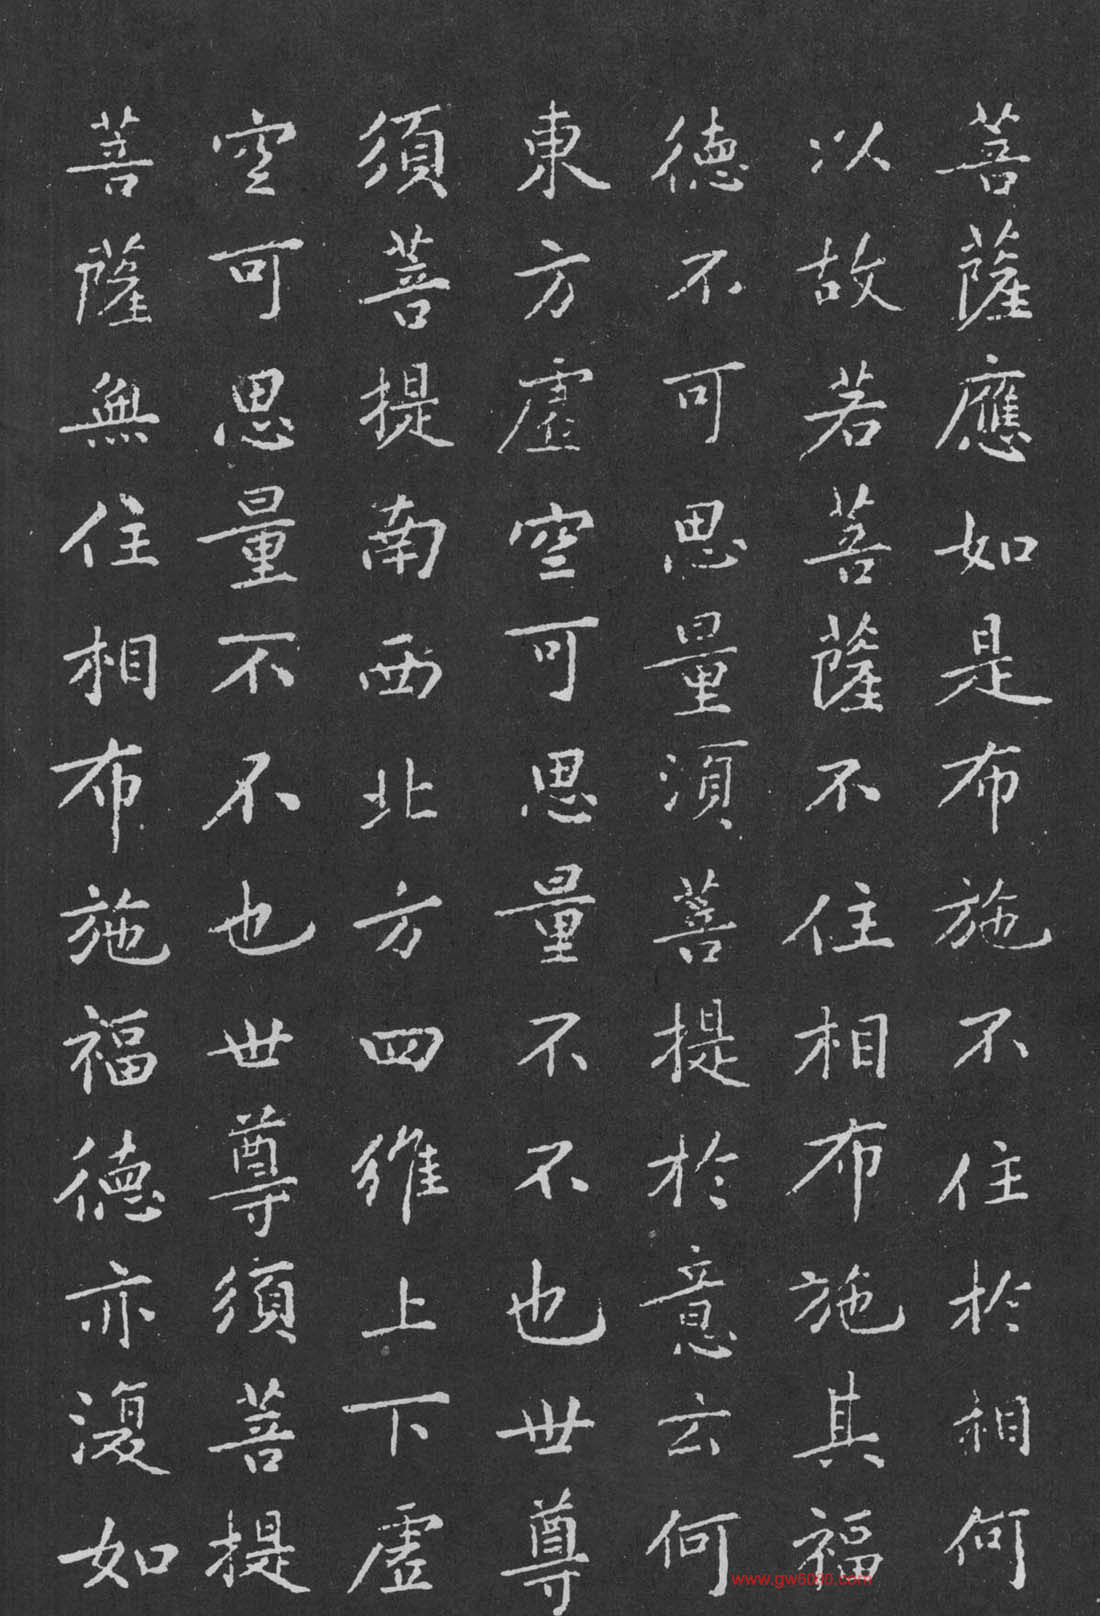 菩薩應如是布施不住於相何
以故若菩薩不住相布施其福
德不可思量須菩提於意云何
東方虛空可思量不不也世尊
須菩提南西北方四維上下虛
空可思量不不也世尊須菩提
菩薩無住相布施福德亦復如
www.gw5000.com